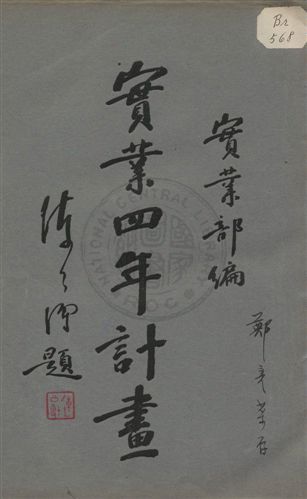 Br
568
實業部編
實業四年計畫
陳公博題
NATIONAL CENTRAL LIBRARY
ROC